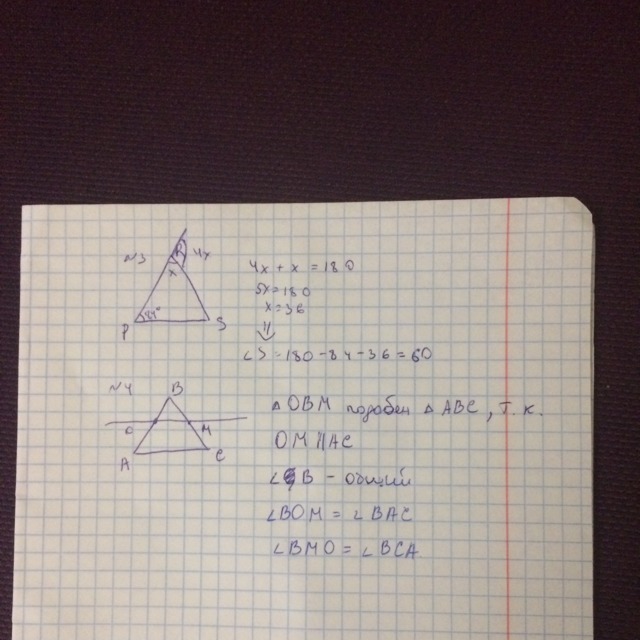 N3
4x
x
84°
P
S
4x + x = 180
5x = 180
x = 36
∠S = 180 - 84 - 36 = 60
N4
B
O
M
A
C
△OBM подобен △ABC, т.к.
OM||AC
∠B - общий
∠BOM = ∠BAC
∠BMO = ∠BCA